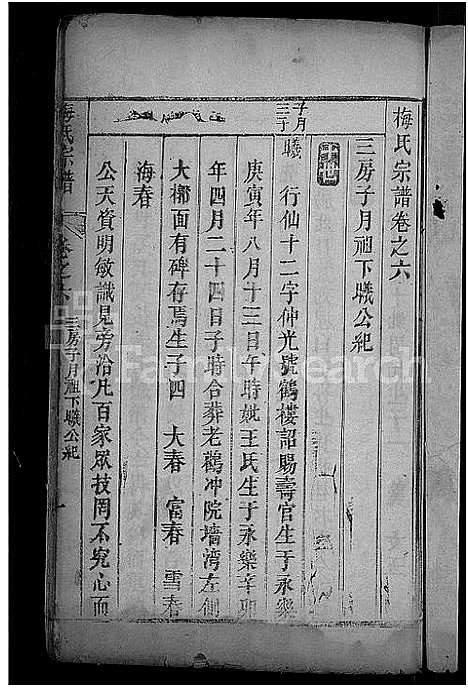 梅氏宗譜卷之六
三房子月祖下曦公紀
子月
三子
曦
行仙十二字仲光號鶴樓詔賜壽官生于永樂
庚寅年八月十三日午時妣王氏生于永樂辛卯
年四月二十四日子時合葬老鸛冲院墻湾左側
大槨面有碑存焉生子四 大春 富春 雪春
海春
公天資明敏識見旁洽凡百家眾技罔不究心而
梅氏宗譜
卷之六
三房子月祖下曦公紀
一
FamilySearch